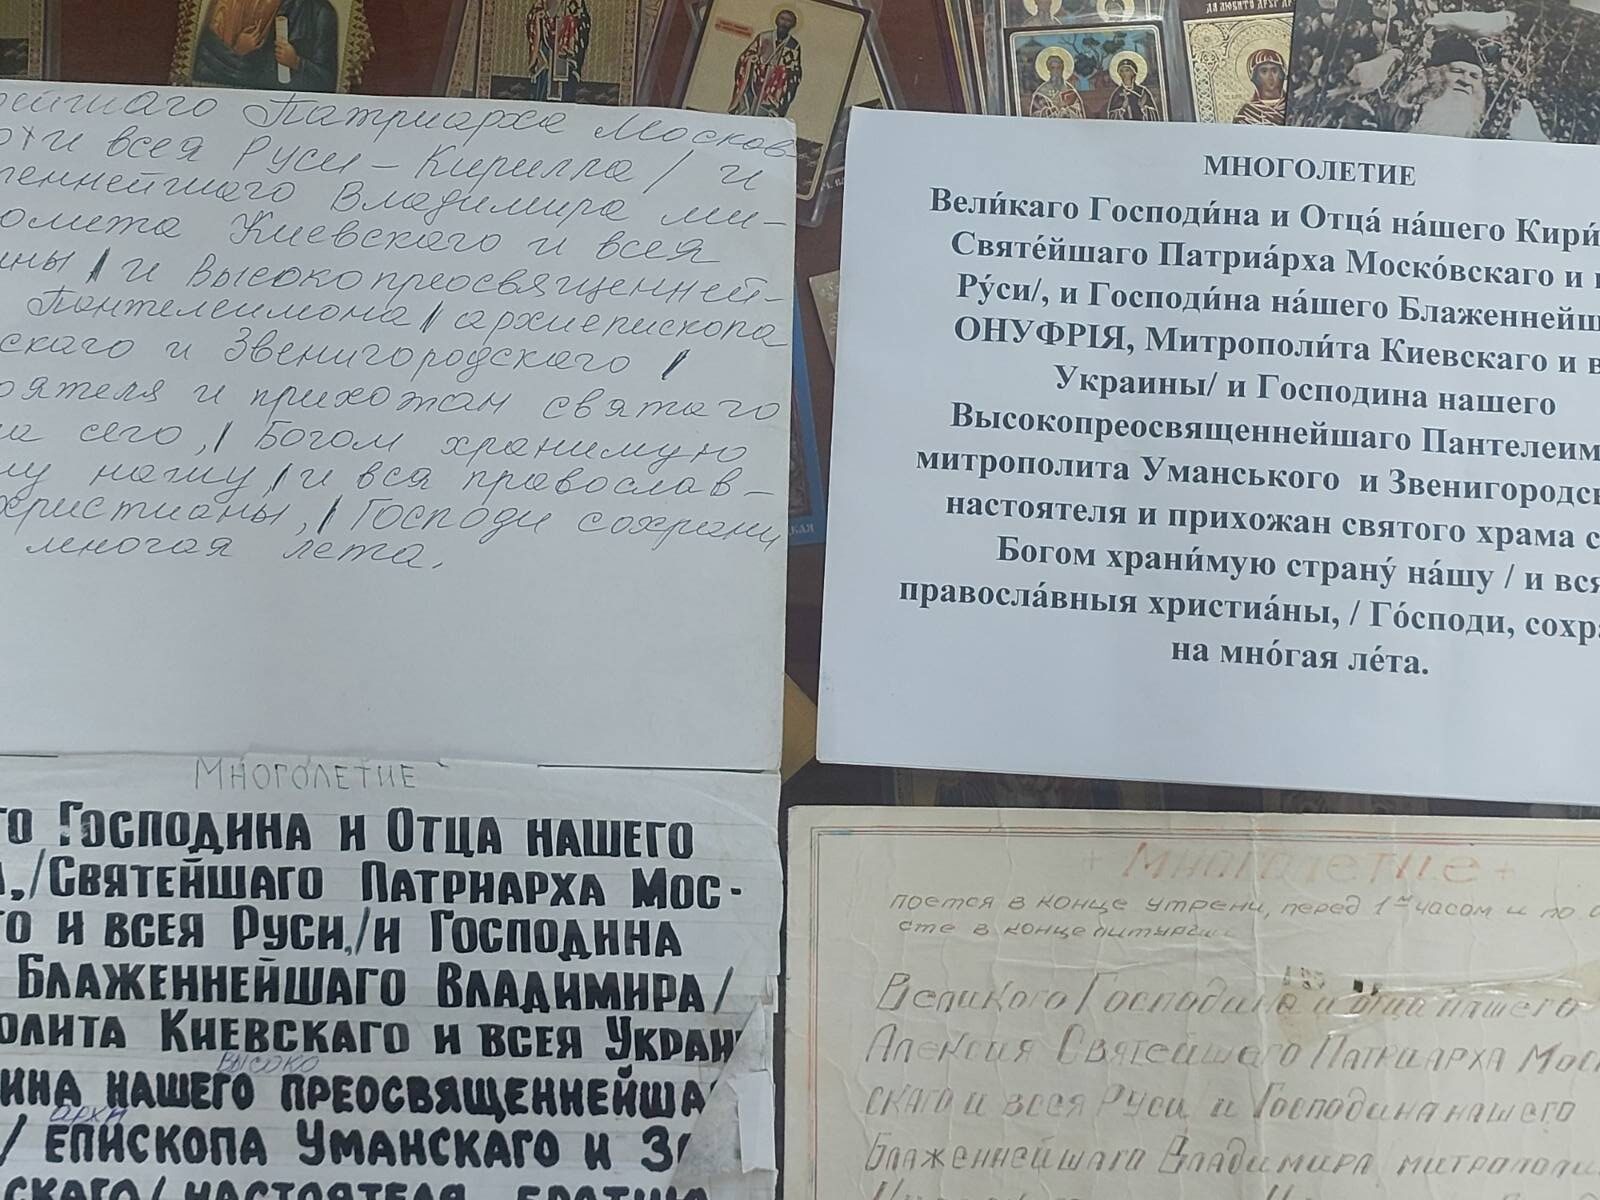 рейшаго Патриарха Москов-
и всея Руси - Кирилла / и
женнейшаго Владимира ми-
полита Киевскаго и всея
ины / и Высокопреосвященней-
Пантелеимона / архиепископа
скаго и Звенигородскаго /
оятеля и прихожан святаго
ма сего, / Богом хранимую
ну нашу, / и вся православ-
христианы, / Господи сохрани
многая лета.
МНОГОЛЕТИЕ
Вели́каго Господи́на и Отца́ на́шего Кири́
Святе́йшаго Патриа́рха Моско́вскаго и
Ру́си/, и Господи́на на́шего Блаженнейш
ОНУФРІЯ, Митрополи́та Киевскаго и в
Украины/ и Господина нашего
Высокопреосвященнейшаго Пантелеим
митрополита Уманського и Звенигородс
настоятеля и прихожан святого храма с
Богом храни́мую страну́ на́шу / и вся
правосла́вныя христиа́ны, / Го́споди, сохра
на мно́гая ле́та.
Многолетие
го Господина и Отца нашего
а,/Святейшаго Патриарха Мос-
го и всея Руси,/и Господина
Блаженнейшаго Владимира/
олита Киевскаго и всея Украи
высоко
ина нашего преосвященнейша
архи
/ епископа Уманскаго и З
скаго/настоятеля
+ Многолетие +
поется в конце утрени, перед 1м часом и по
сте в конце литургии
Великого Господина и отца нашего
Алексия Святейшаго Патриарха Мос
скаго и всея Руси и Господина нашего
Блаженнейшаго Владимира митрополи